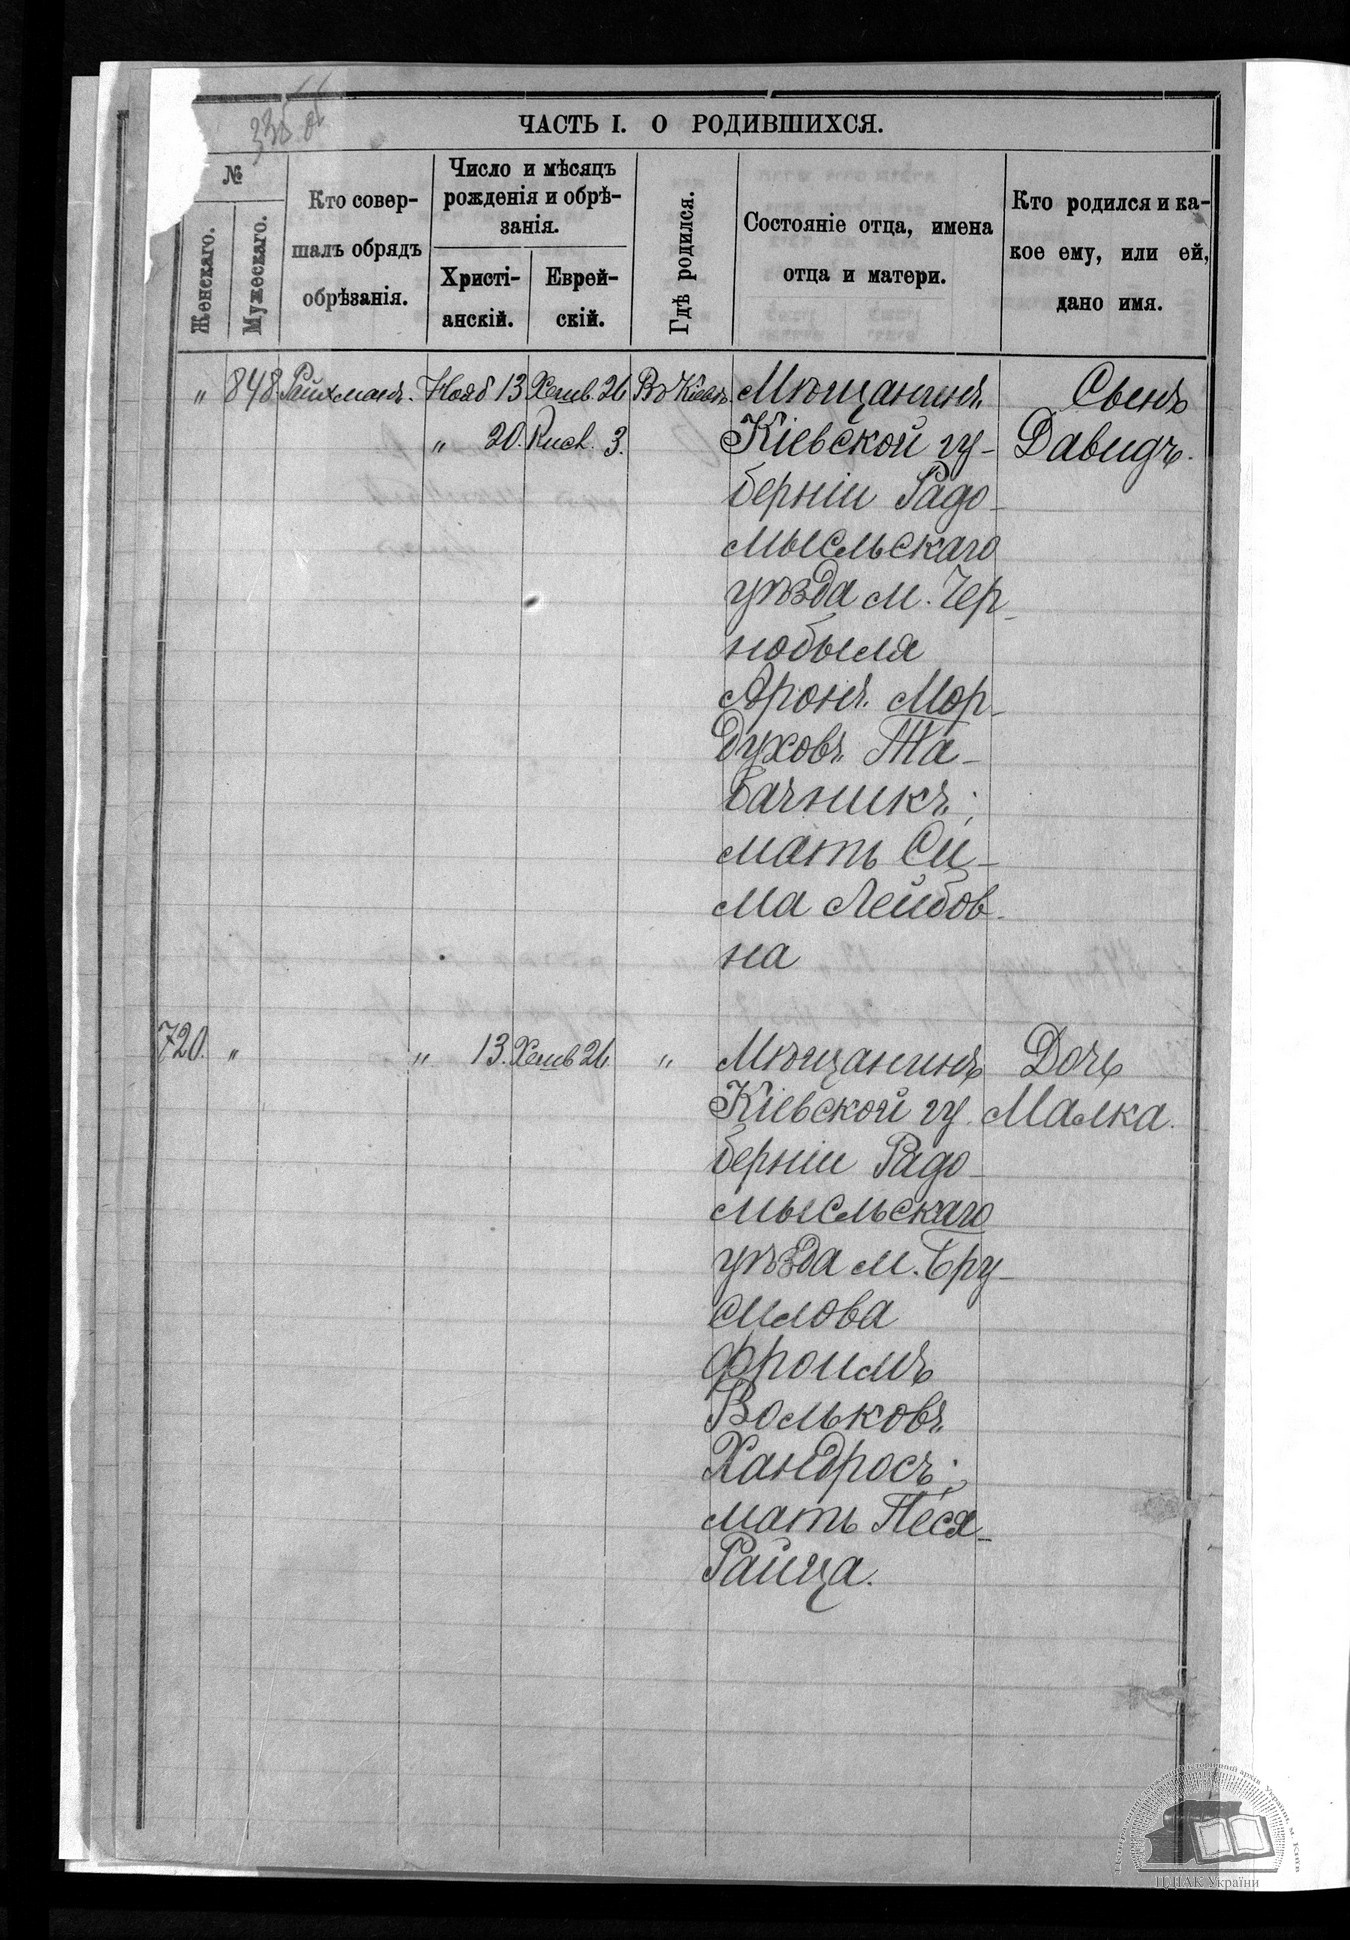 ЧАСТЬ I. О РОДИВШИХСЯ.
№
Женскаго.
Мужескаго.
Кто совер-
шалъ обрядъ
обрѣзанія.
Число и мѣсяцъ
рожденія и обрѣ-
занія.
Христі-
анскій.
Еврей-
скій.
Гдѣ родился.
Состояніе отца, имена
отца и матери.
Кто родился и ка-
кое ему, или ей,
дано имя.
„ 848. Райхманъ. Нояб 13 Хешв. 26 Въ Кіевѣ Мѣщанинъ Сынъ
„ 20. Кисл. 3. Кіевской гу- Давидъ.
берніи Радо-
мысльскаго
уѣзда м. Чер-
нобыля
Аронъ Мор-
духовъ Та-
бачникъ;
мать Си-
ма Лейбов-
на
720. „ „ 13. Хешв 26. „ Мѣщанинъ Дочь
Кіевской гу- Малка.
берніи Радо-
мысльскаго
уѣзда м. Бру-
силова
Фроимъ
Вольковъ
Хандросъ;
мать Песя-
Райца.
ЦДІАК України